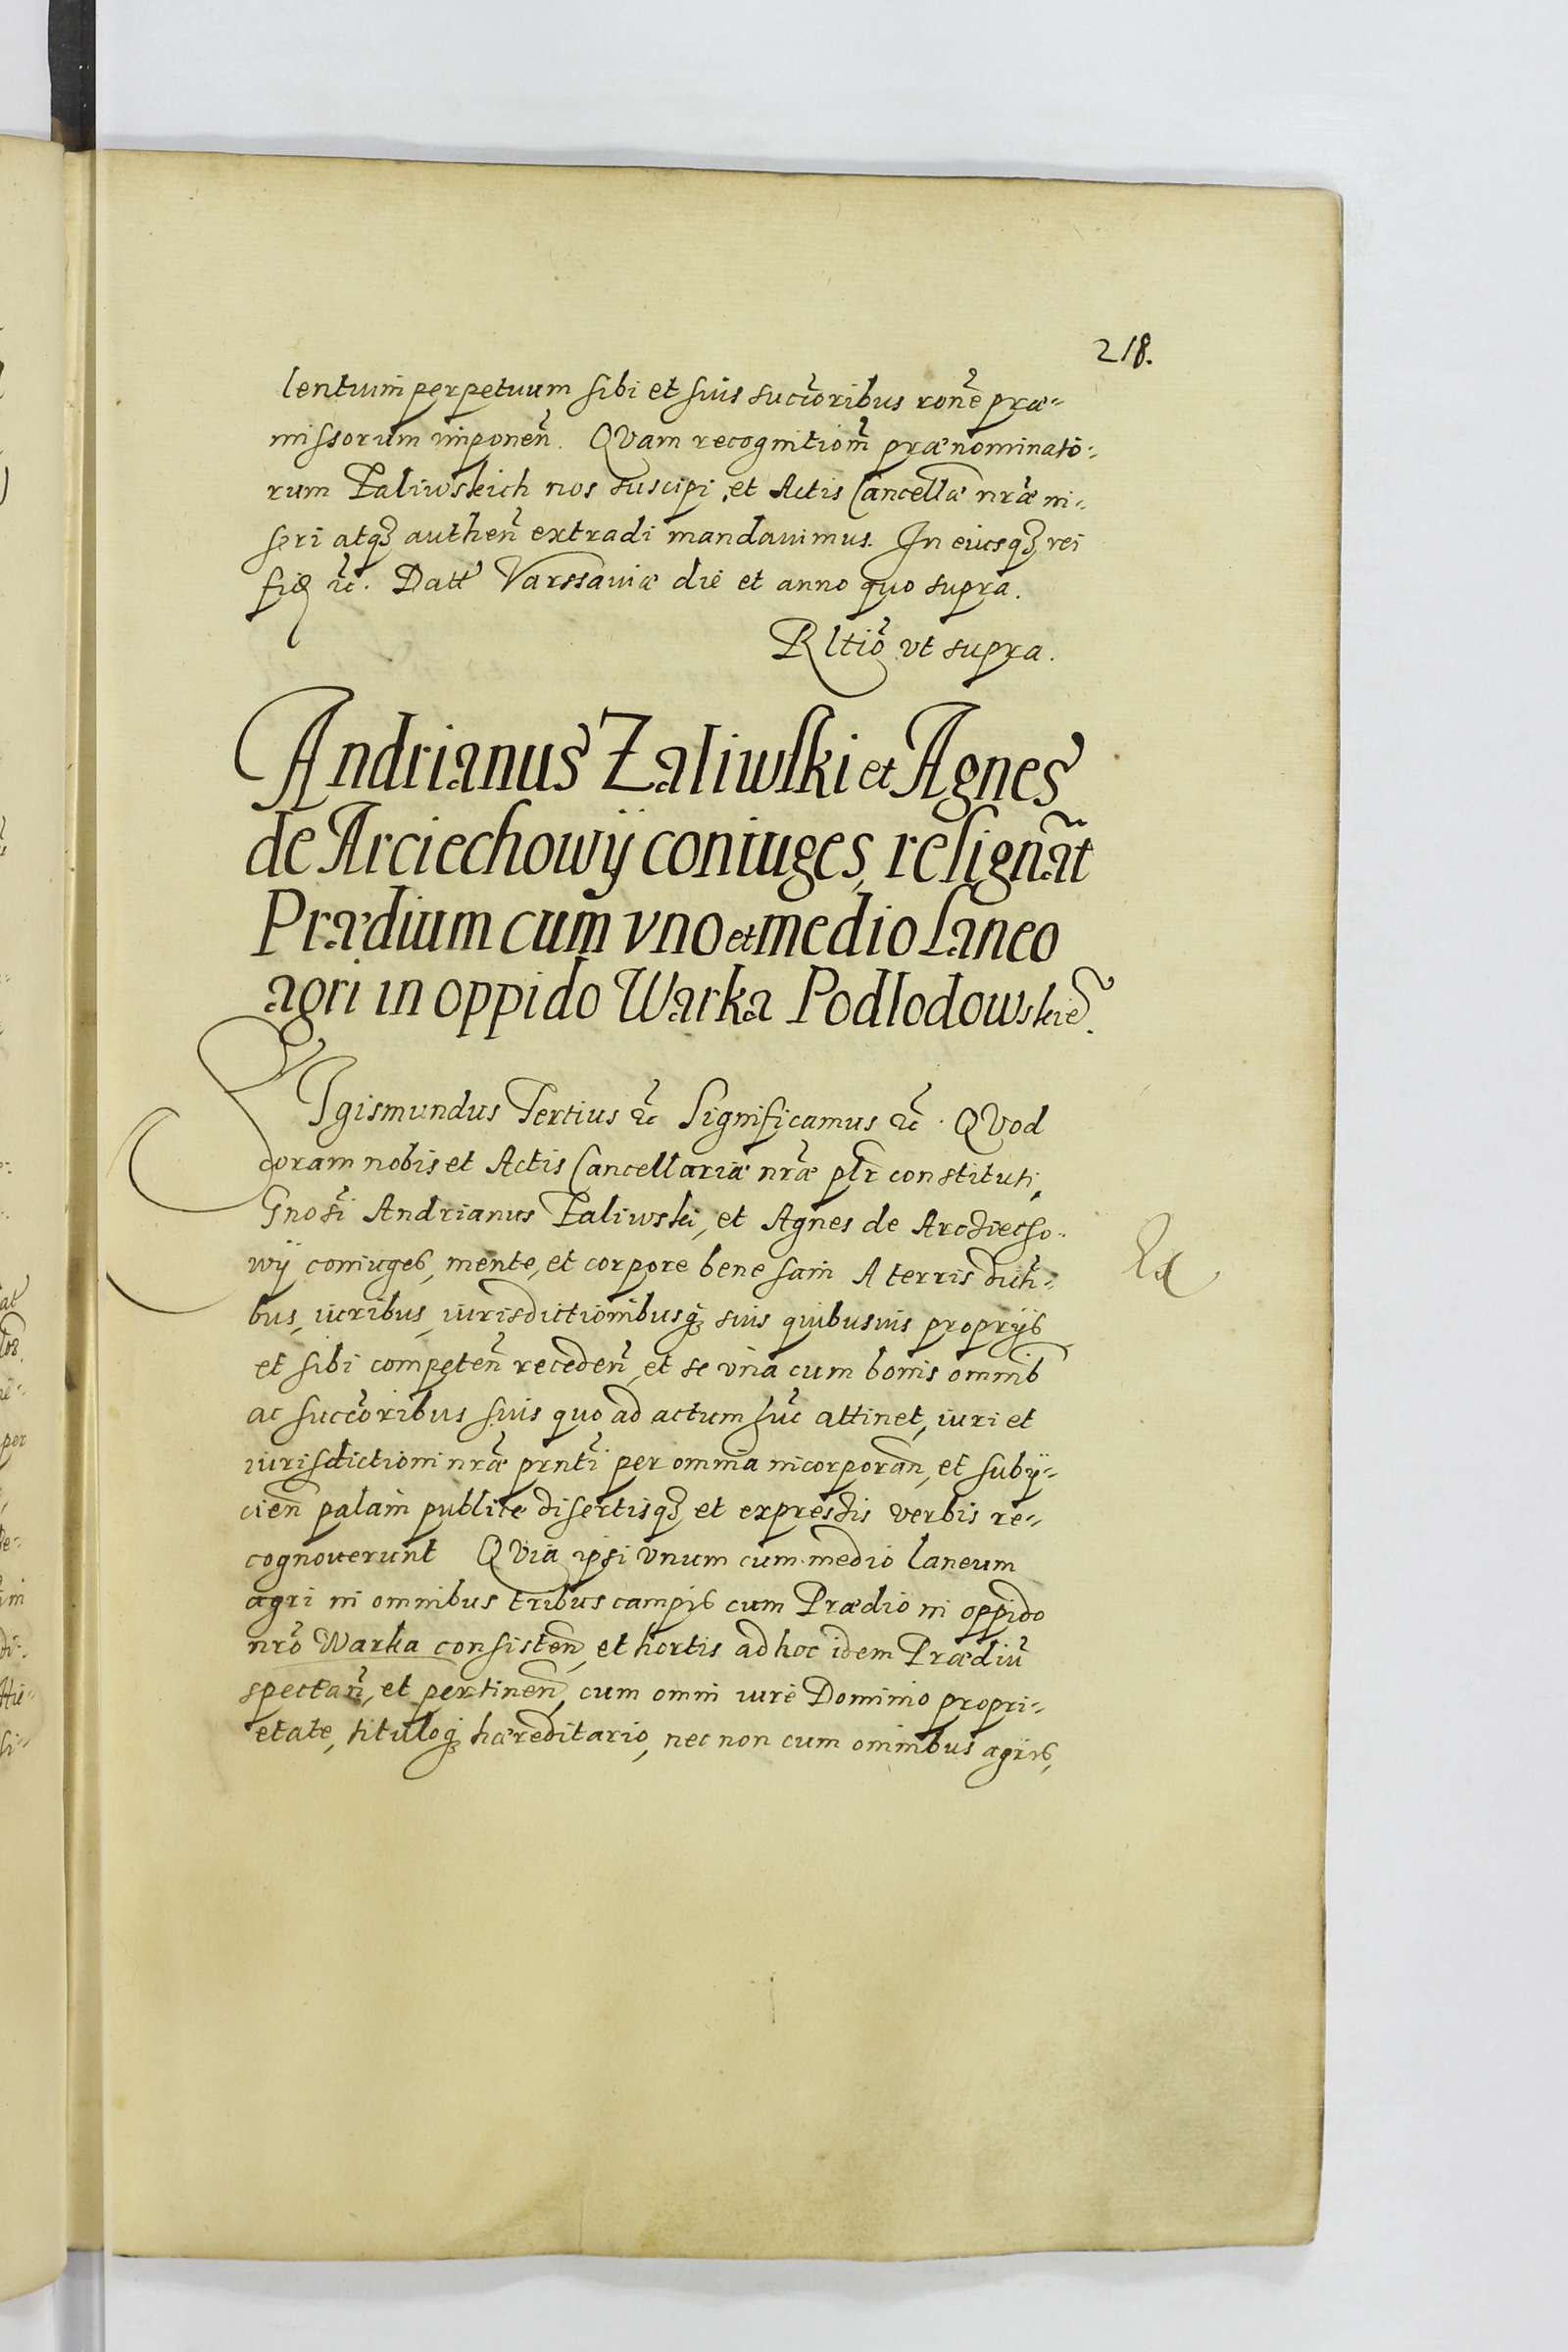 218.
lentium perpetuum sibi et suis succōribus rōne præ-
missorum imponeñ. QVam recognitioñ prænominato-
rum Zaliwskich nos suscipi, et Actis Cancellæ nr̃æ in-
seri atq3 autheñ extradi mandauimus. In eiusq3 rei
fid̃ &c̃. Datt Varssauiæ die et anno quo supra.
Rltiõ vt supra.
Andrianus Zaliwski et Agnes
de Arciechowÿ coniuges, resignãt
Prædium cum vno et medio Laneo
agri in oppido Warka Podlodowskiẽ.
SIgismundus Tertius &c̃ Significamus &c̃. QVod
coram nobis et Actis Cancellariæ nr̃æ pl̃r constituti,
Gnosĩ Andrianus Zaliwski, et Agnes de Arcziecho-
wÿ coniuges, mente, et corpore bene sani A terris dicti-
bus, iuribus, iurisdictionibusq3 suis quibusuis proprijs
et sibi competeñ recedeñ, et se vna cum bonis omnib
ac succōribus suis quo ad actum hũc attinet, iuri et
iurisdictioni nr̃æ prñti per omnia incorporañ, et subÿ-
cieñ palam publice disertisq3 et expressis verbis re-
cognouerunt QVia ipsi vnum cum medio laneum
agri in omnibus tribus campis cum Prædio in oppido
nr̃o Warka consisteñ, et hortis ad hoc idem Prædiũ
spectañ, et pertineñ, cum omni iure Dominio propri-
etate, tituloq3 hæreditario, nec non cum omnibus agris,